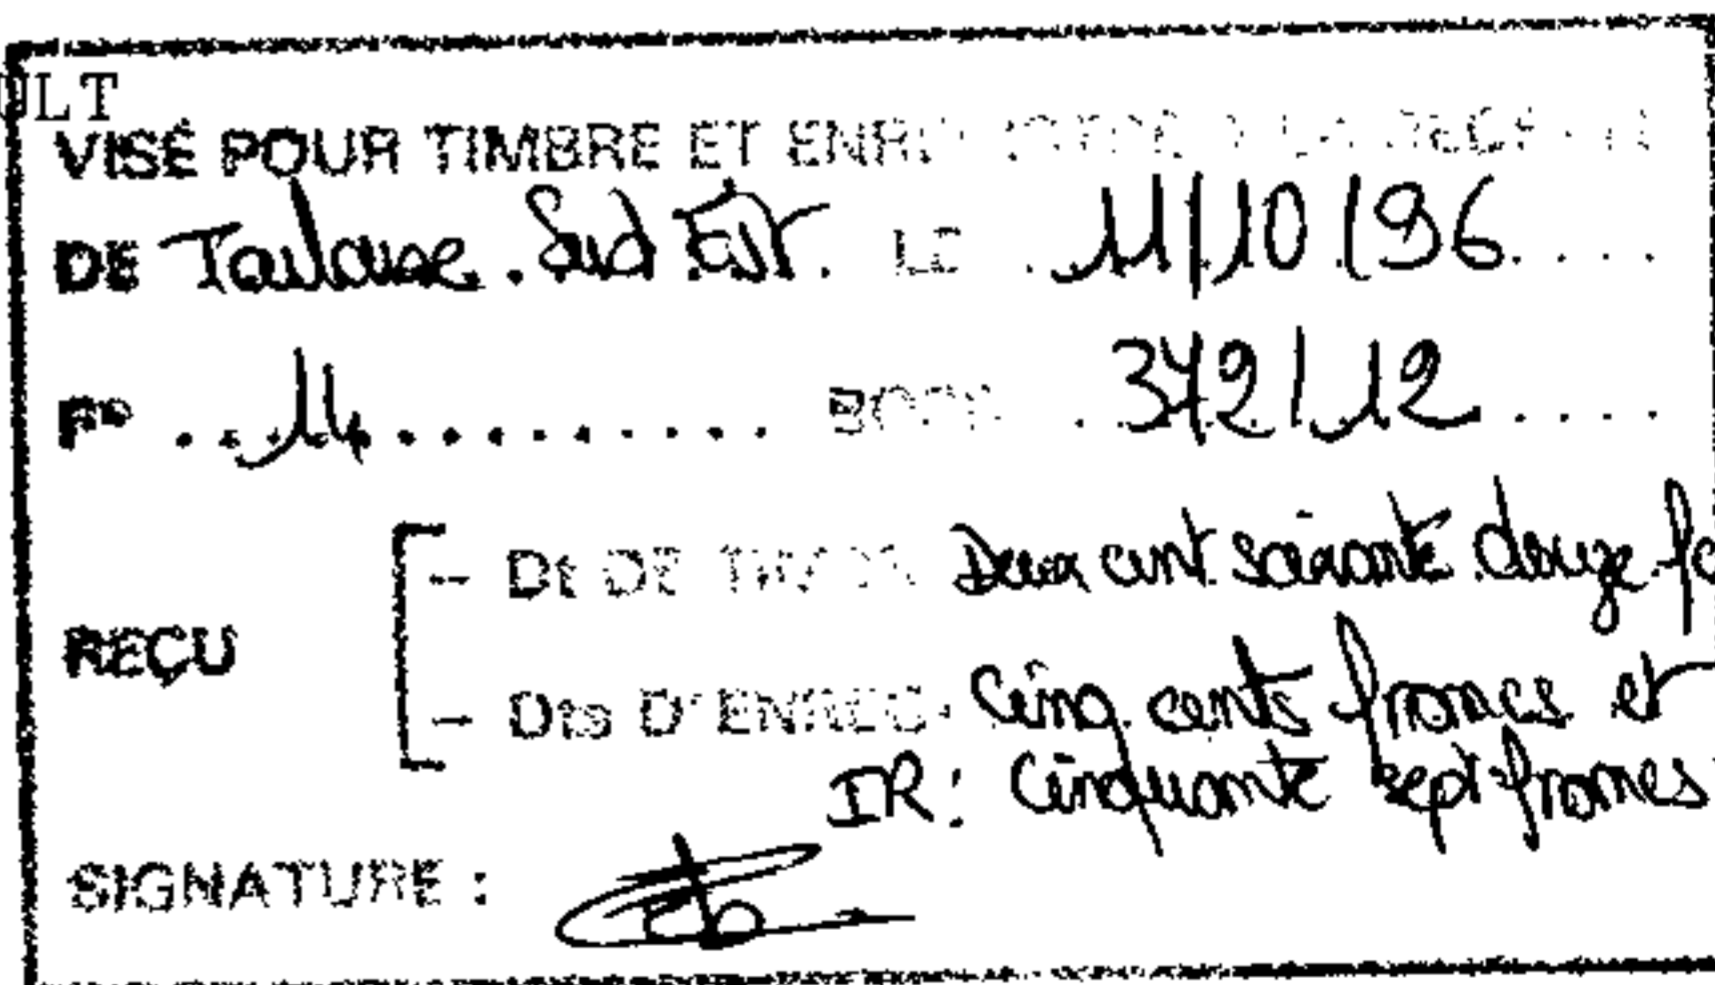 ULT
VISÉ POUR TIMBRE ET ENR
DE Toulouse Sud Est LE 11/10/96
F° 14 BORD 372/12
- Dt DE TIMBRE Deux cent soixante douze
REÇU
- Dts D'ENREG. Cinq cents francs et
IR: Cinquante sept francs
SIGNATURE :